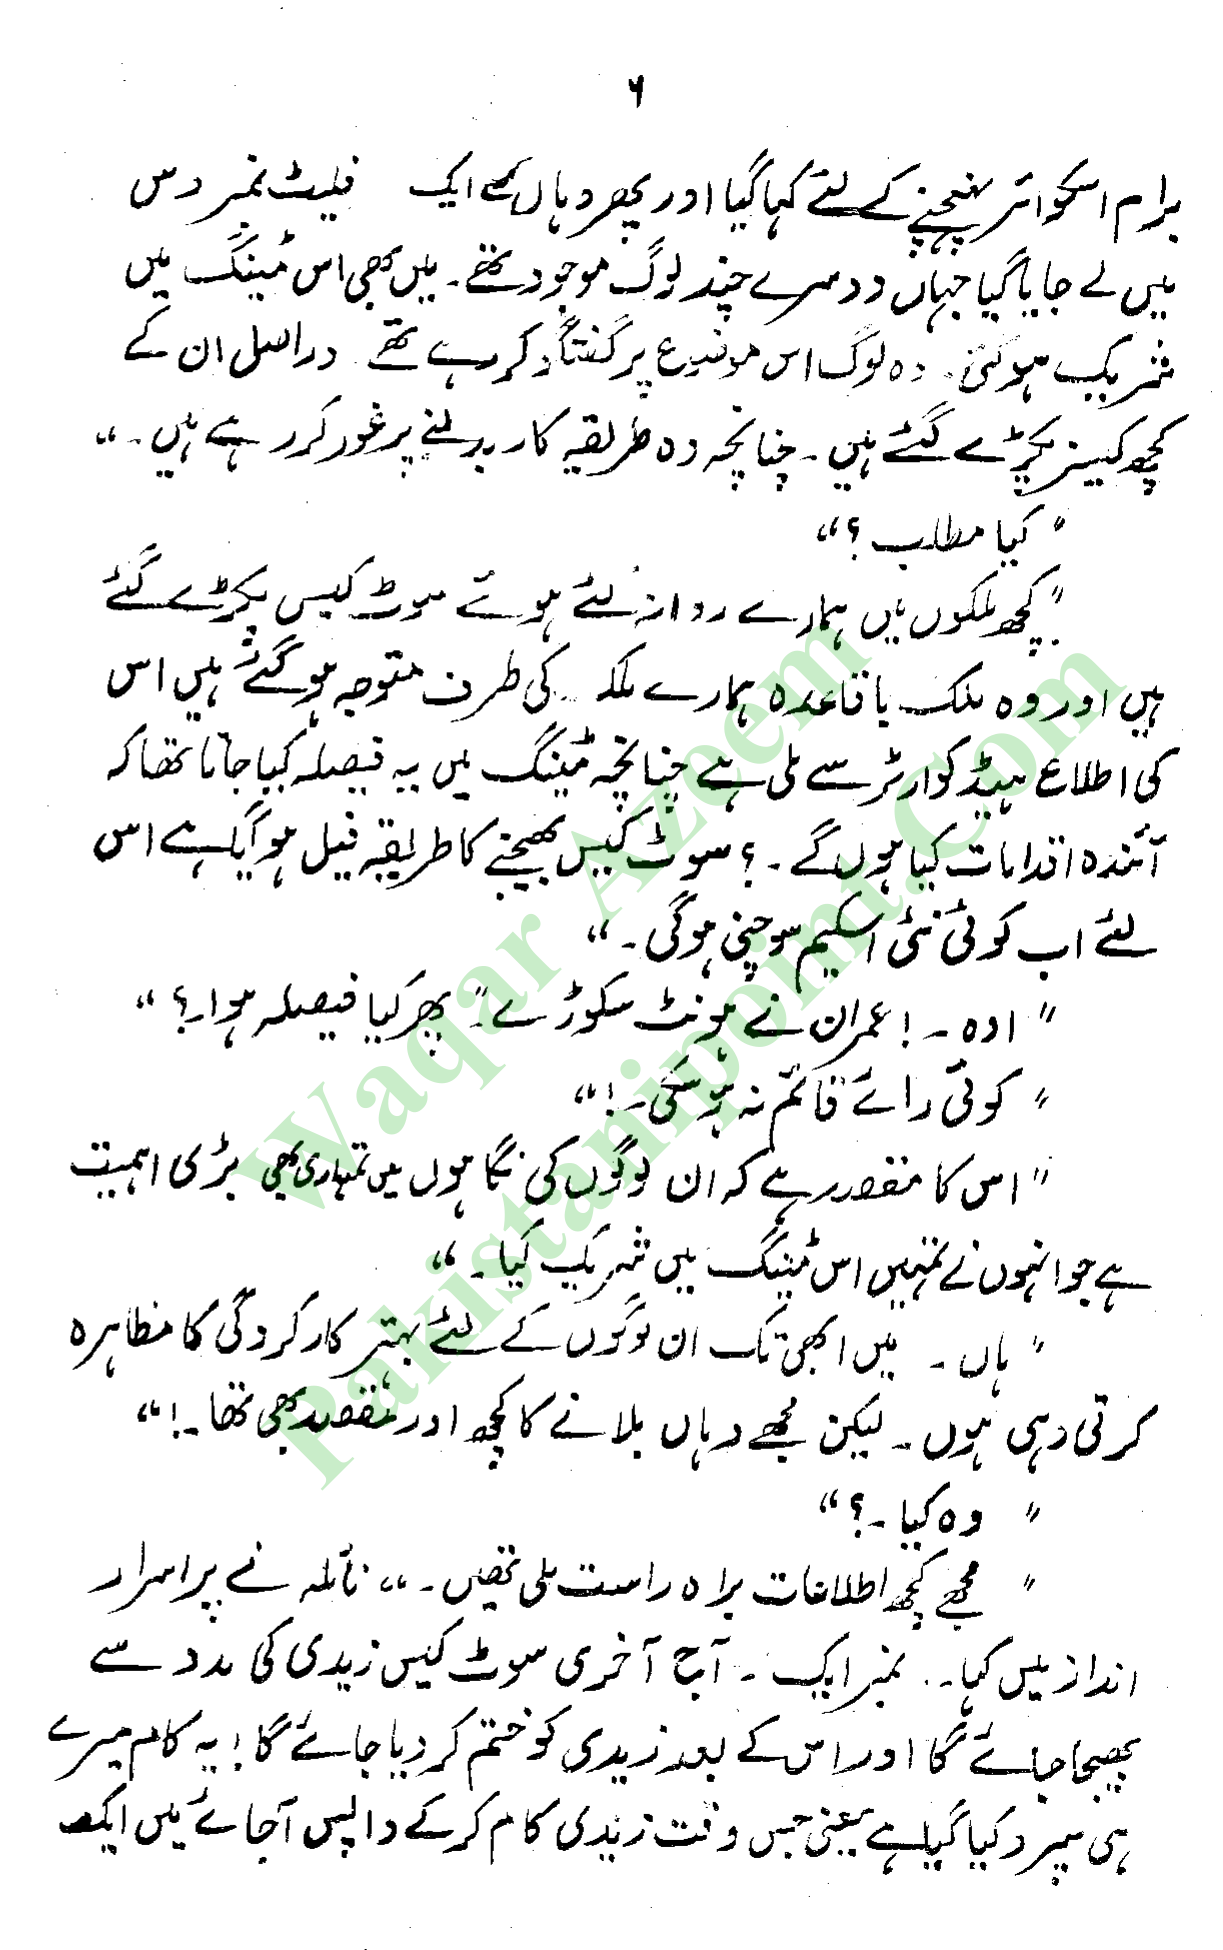 ۶
برام اسکوائر پہنچنے کے لئے کہا گیا اور پھر وہاں کے ایک فلیٹ نمبر دس
میں لے جایا گیا جہاں دوسرے چند لوگ موجود تھے۔ میں بھی اس میٹنگ میں
شریک ہو گئی۔ وہ لوگ اس موضوع پر گفتگو کر رہے تھے دراصل ان کے
کچھ کیسز پکڑے گئے ہیں۔ چنانچہ وہ طریقہ کار بدلنے پر غور کر رہے ہیں۔"
"کیا مطلب؟"
"کچھ ملکوں میں ہمارے روانہ کئے ہوئے سوٹ کیس پکڑے گئے
ہیں اور وہ ملک باقاعدہ ہمارے ملک کی طرف متوجہ ہو گئے ہیں اس
کی اطلاع ہیڈ کوارٹر سے ملی ہے چنانچہ میٹنگ میں یہ فیصلہ کیا جانا تھا کہ
آئندہ اقدامات کیا ہوں گے۔؟ سوٹ کیس بھیجنے کا طریقہ فیل ہو گیا ہے اس
لئے اب کوئی نئی اسکیم سوچنی ہوگی۔"
"اوہ۔! عمران نے ہونٹ سکوڑے" پھر کیا فیصلہ ہوا۔؟"
"کوئی رائے قائم نہ ہو سکی۔!"
"اس کا مقصد ہے کہ ان لوگوں کی نگاہوں میں تمہاری بھی بڑی اہمیت
ہے جو انہوں نے تمہیں اس میٹنگ میں شریک کیا۔"
"ہاں۔ میں ابھی تک ان لوگوں کے لئے بہتر کارکردگی کا مظاہرہ
کرتی رہی ہوں۔ لیکن مجھے وہاں بلانے کا کچھ اور مقصد بھی تھا۔!"
"وہ کیا۔؟"
"مجھے کچھ اطلاعات براہ راست ملی تھیں۔" نائلہ نے پر اسرار
انداز میں کہا۔ نمبر ایک۔ آج آخری سوٹ کیس زیدی کی مدد سے
بھیجا جائے گا اور اس کے بعد زیدی کو ختم کر دیا جائے گا! یہ کام میرے
ہی سپرد کیا گیا ہے یعنی جس وقت زیدی کام کر کے واپس آجائے میں ایک
Waqar Azeem
Pakistanipoint.Com